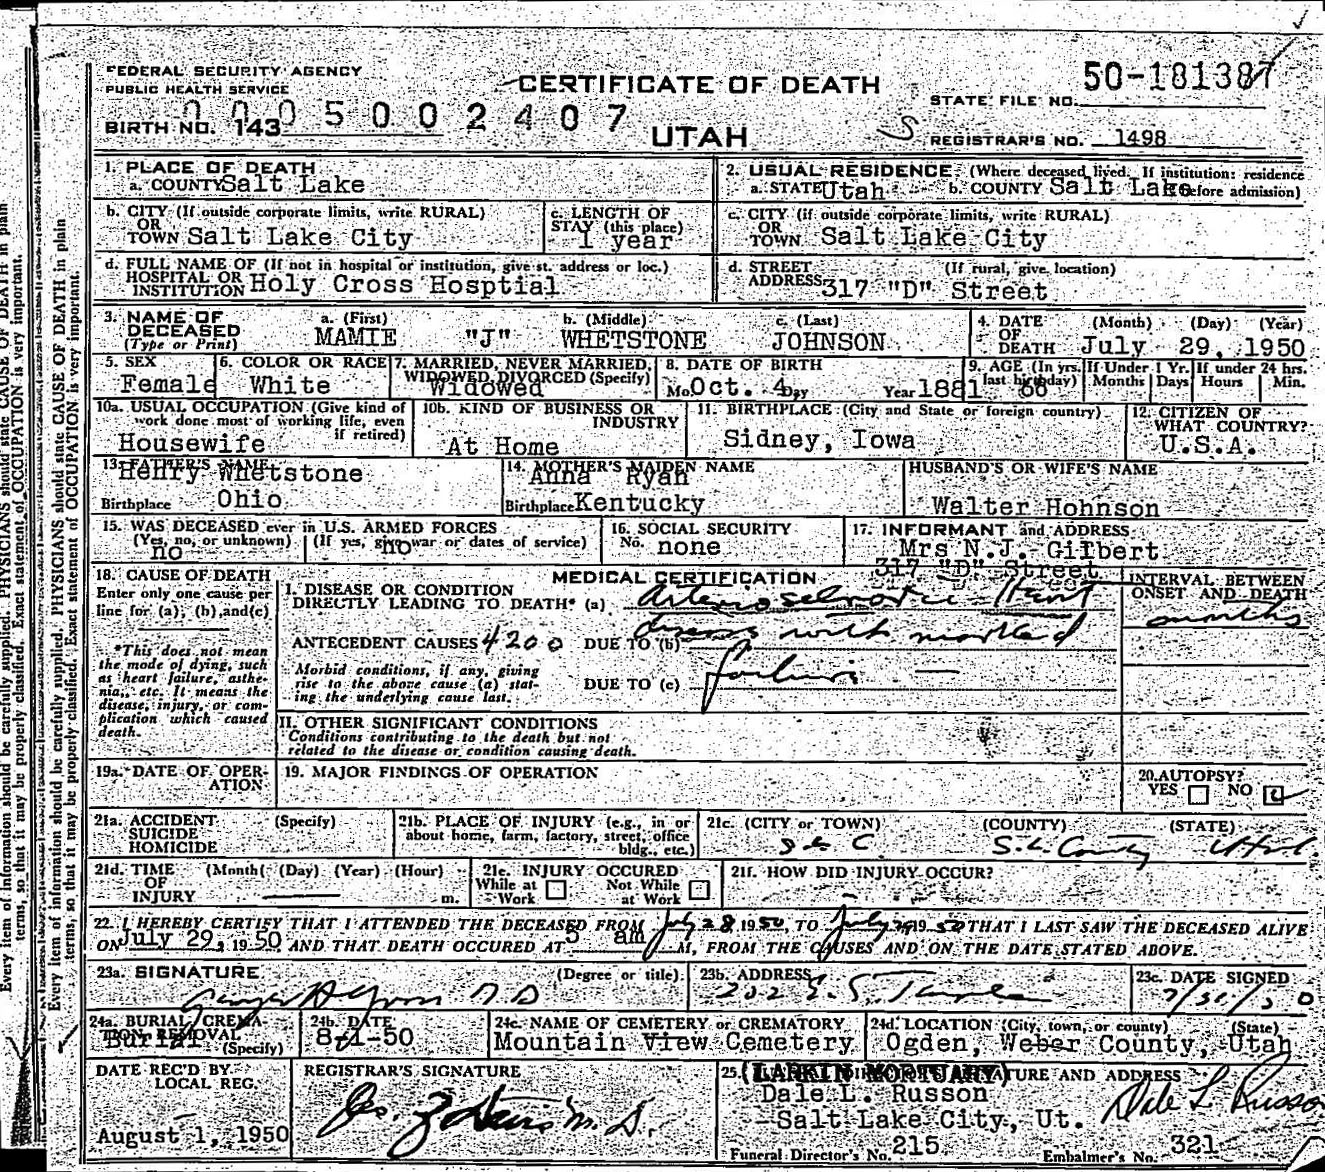 FEDERAL SECURITY AGENCY
PUBLIC HEALTH SERVICE
BIRTH NO. 143
0005002407
CERTIFICATE OF DEATH
UTAH
STATE FILE NO. 50-181387
REGISTRAR'S NO. 1498
1. PLACE OF DEATH
a. COUNTY Salt Lake
2. USUAL RESIDENCE (Where deceased lived. If institution: residence
a. STATE Utah b. COUNTY Salt Lake before admission)
b. CITY (If outside corporate limits, write RURAL)
OR
TOWN Salt Lake City
c. LENGTH OF
STAY (this place)
1 year
c. CITY (if outside corporate limits, write RURAL)
OR
TOWN Salt Lake City
d. FULL NAME OF (If not in hospital or institution, give st. address or loc.)
HOSPITAL OR
INSTITUTION Holy Cross Hosptial
d. STREET (If rural, give location)
ADDRESS 317 "D" Street
3. NAME OF
DECEASED
(Type or Print)
a. (First) b. (Middle) c. (Last)
MAMIE "J" WHETSTONE JOHNSON
4. DATE
OF
DEATH
(Month) (Day) (Year)
July 29, 1950
5. SEX
Female
6. COLOR OR RACE
White
7. MARRIED, NEVER MARRIED,
WIDOWED DIVORCED (Specify)
Widowed
8. DATE OF BIRTH
Mo. Oct. 4 Day Year 1881
9. AGE (In yrs. last birthday)
If Under 1 Yr.
Months Days
If under 24 hrs.
Hours Min.
10a. USUAL OCCUPATION (Give kind of
work done most of working life, even
if retired)
Housewife
10b. KIND OF BUSINESS OR
INDUSTRY
At Home
11. BIRTHPLACE (City and State or foreign country)
Sidney, Iowa
12. CITIZEN OF
WHAT COUNTRY?
U.S.A.
13. FATHER'S NAME
Henry Whetstone
Birthplace Ohio
14. MOTHER'S MAIDEN NAME
Anna Ryan
Birthplace Kentucky
HUSBAND'S OR WIFE'S NAME
Walter Hohnson
15. WAS DECEASED ever in U.S. ARMED FORCES
(Yes, no, or unknown) (If yes, give war or dates of service)
no no
16. SOCIAL SECURITY
No. none
17. INFORMANT and ADDRESS
Mrs N.J. Gilbert
317 "D" Street
18. CAUSE OF DEATH
Enter only one cause per
line for (a), (b), and (c)
*This does not mean
the mode of dying, such
as heart failure, asthe-
nia, etc. It means the
disease, injury, or com-
plication which caused
death.
MEDICAL CERTIFICATION
I. DISEASE OR CONDITION
DIRECTLY LEADING TO DEATH* (a) Heart
ANTECEDENT CAUSES 4200 DUE TO (b) disease with marked
Morbid conditions, if any, giving
rise to the above cause (a) stat-
ing the underlying cause last.
DUE TO (c) failure
INTERVAL BETWEEN
ONSET AND DEATH
months
II. OTHER SIGNIFICANT CONDITIONS
Conditions contributing to the death but not
related to the disease or condition causing death.
19a. DATE OF OPER-
ATION
19. MAJOR FINDINGS OF OPERATION
20. AUTOPSY?
YES NO
21a. ACCIDENT
SUICIDE
HOMICIDE
(Specify)
21b. PLACE OF INJURY (e.g., in or
about home, farm, factory, street, office
bldg., etc.)
21c. (CITY or TOWN) (COUNTY) (STATE)
S L C. S.L. County Utah
21d. TIME
OF
INJURY
(Month) (Day) (Year) (Hour)
m.
21e. INJURY OCCURED
While at Work Not While at Work
21f. HOW DID INJURY OCCUR?
22. I HEREBY CERTIFY THAT I ATTENDED THE DECEASED FROM July 28 1950, TO July 29 1950 THAT I LAST SAW THE DECEASED ALIVE
ON July 29, 1950 AND THAT DEATH OCCURED AT 5 am M, FROM THE CAUSES AND ON THE DATE STATED ABOVE.
23a. SIGNATURE (Degree or title)
23b. ADDRESS
202 E. S. Temple
23c. DATE SIGNED
7/31/50
24a. BURIAL, CREMA-
TION, REMOVAL
(Specify)
Burial
24b. DATE
8-1-50
24c. NAME OF CEMETERY or CREMATORY
Mountain View Cemetery
24d. LOCATION (City, town, or county) (State)
Ogden, Weber County, Utah
DATE REC'D BY
LOCAL REG.
August 1, 1950
REGISTRAR'S SIGNATURE
M.D.
25. (LARKIN MORTUARY) SIGNATURE AND ADDRESS
Dale L. Russon
Salt Lake City, Ut.
Dale L Russon
Funeral Director's No. 215
Embalmer's No. 321
Every item of information should be carefully supplied. PHYSICIANS should state CAUSE OF DEATH in plain
terms, so that it may be properly classified. Exact statement of OCCUPATION is very important.
Every item of information should be carefully supplied. PHYSICIANS should state CAUSE OF DEATH in plain
terms, so that it may be properly classified. Exact statement of OCCUPATION is very important.